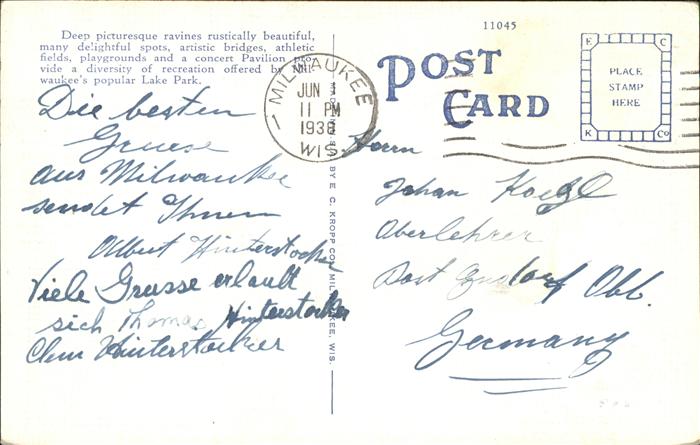 Deep picturesque ravines rustically beautiful,
many delightful spots, artistic bridges, athletic
fields, playgrounds and a concert Pavilion pro-
vide a diversity of recreation offered by Mil-
waukee's popular Lake Park.
Die besten
Gruese
aus Milwaukee
sendet Ihnen
Albert Hinterstocker
Viele Grusse erlaubt
sich Thomas Hinterstocker
Clem Hinterstocker
MILWAUKEE
JUN
11 PM
1938
WIS.
BY E. C. KROPP CO., MILWAUKEE, WIS.
11045
POST
CARD
E C
PLACE
STAMP
HERE
K Co
Herrn
Johan
Oberlehrer
Post Obb.
Germany